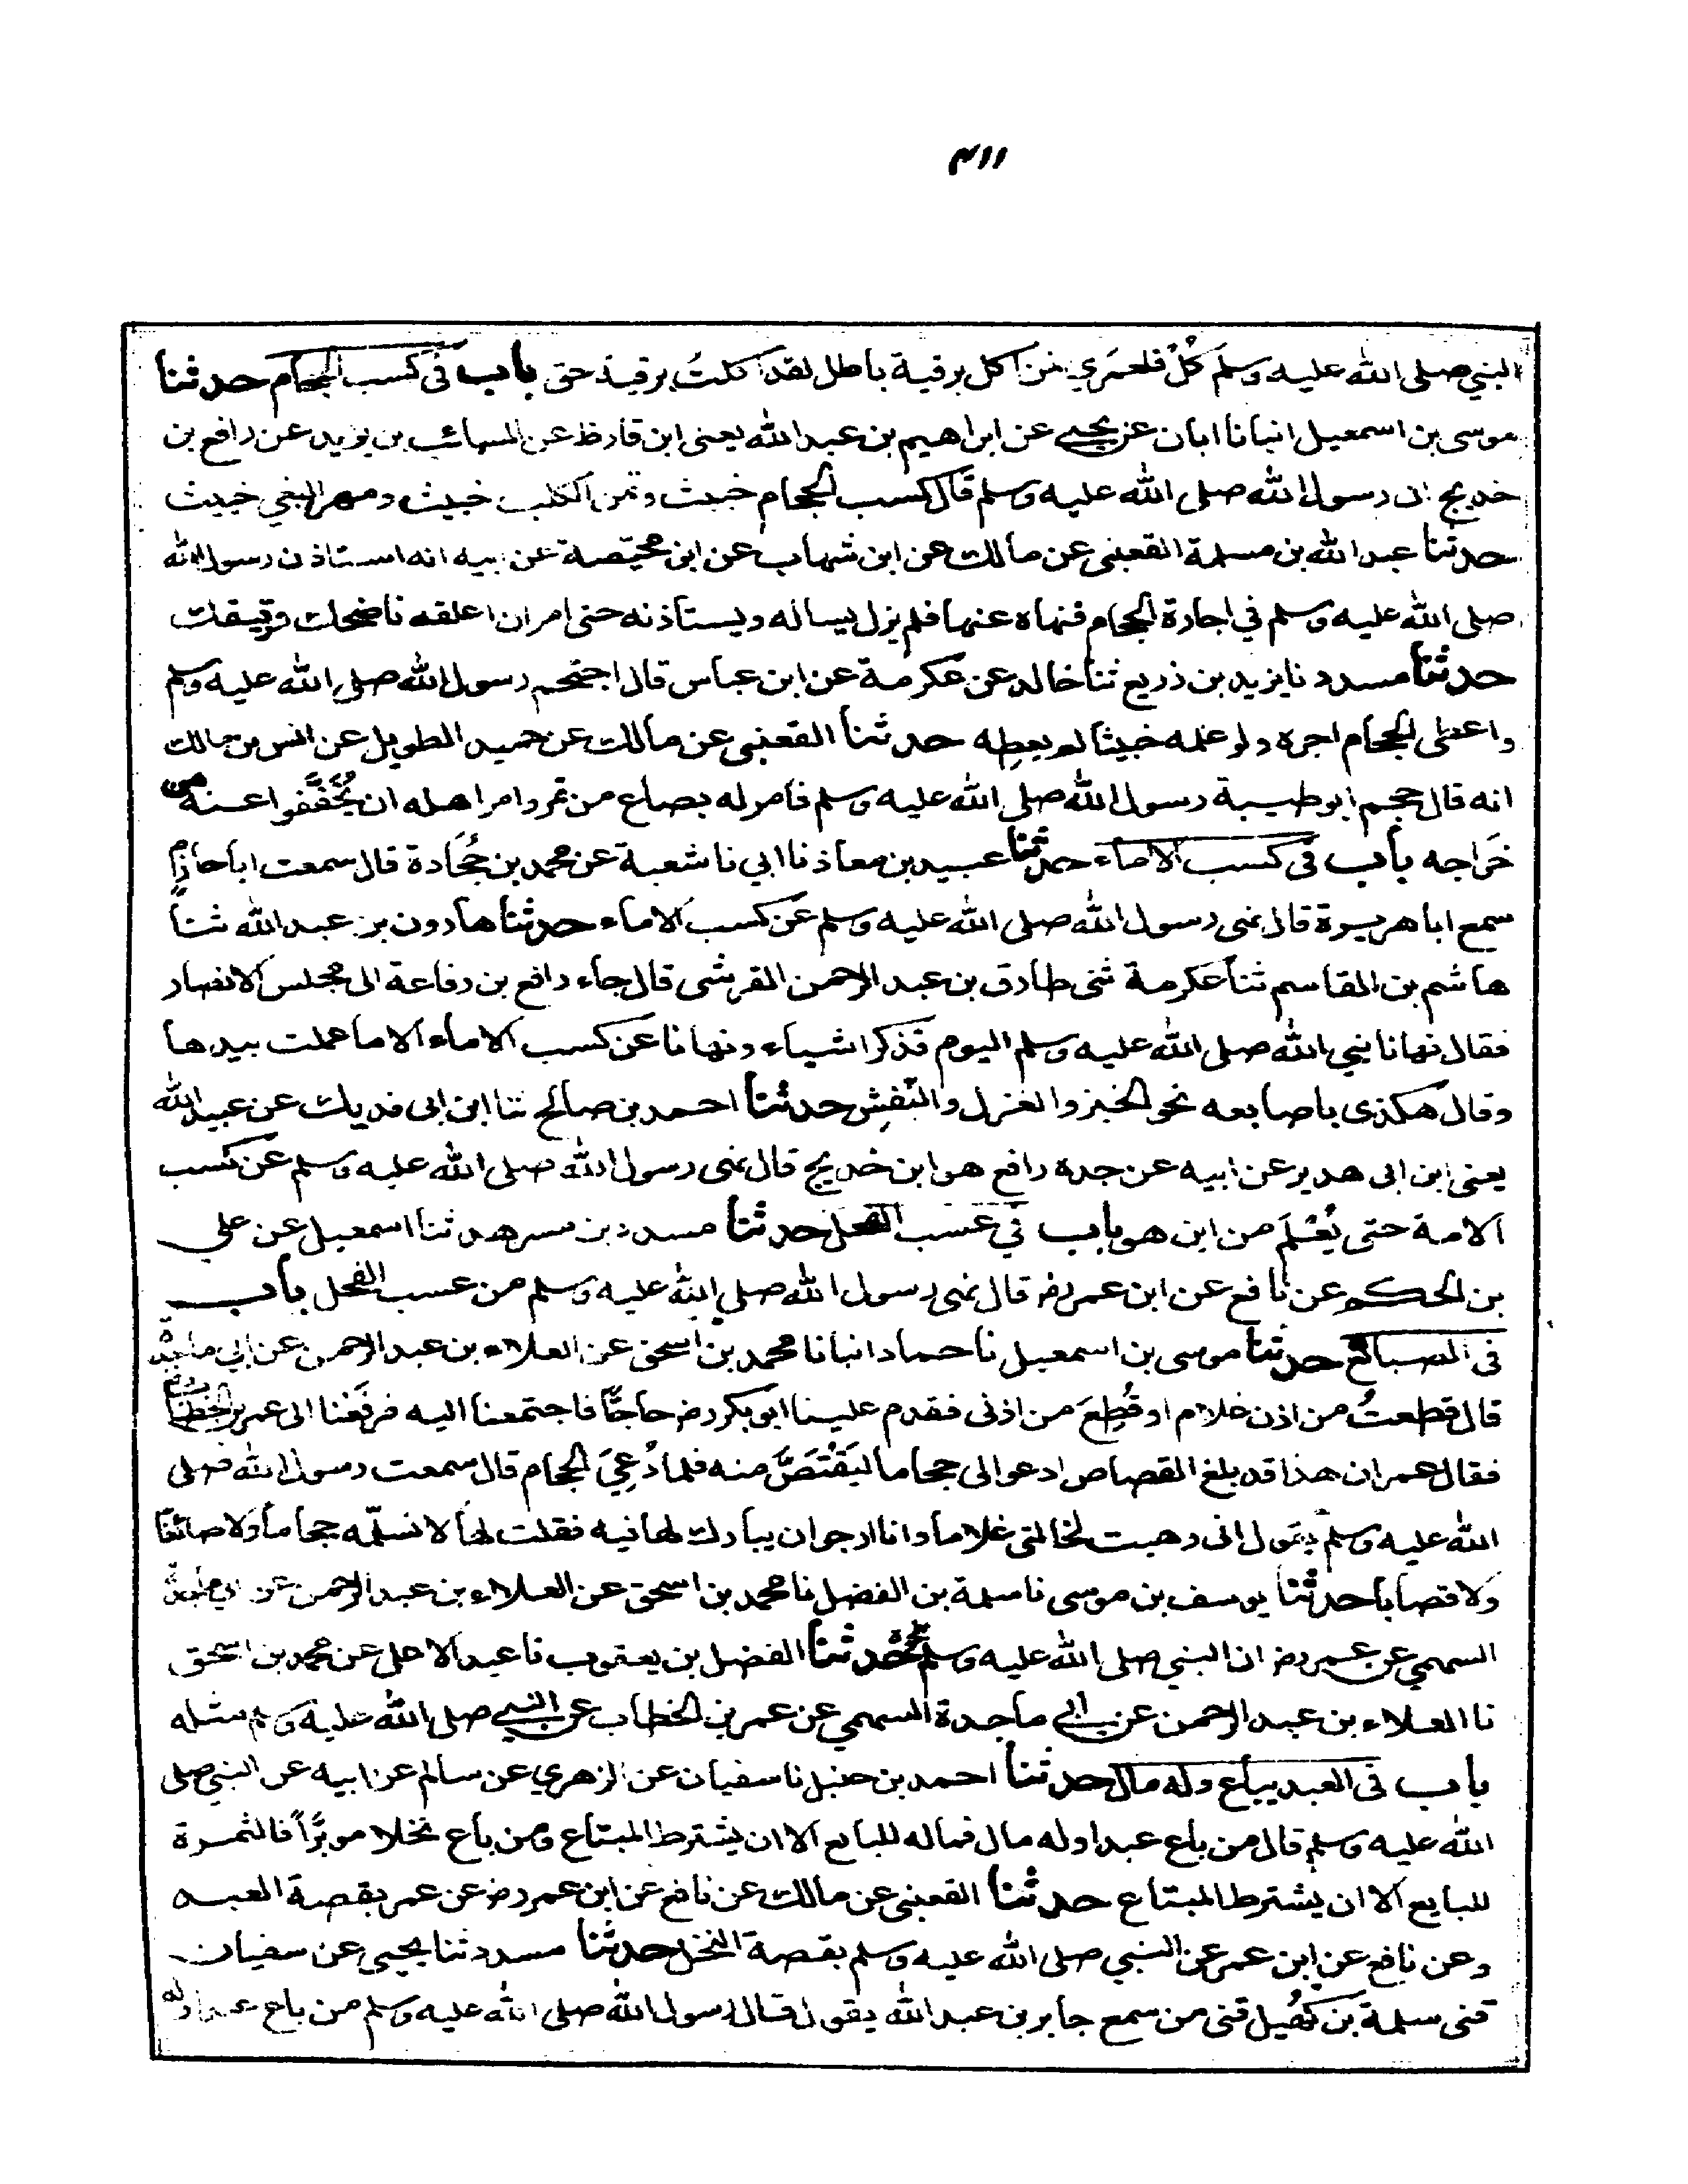 ٣١١
النبي صلى الله عليه وسلم كُلْ فلعَمري من اكل برقية باطل لقد اكلتَ برقية حق باب في كسب الحجام حدثنا
موسى بن اسمعيل انبانا ابان عن يحيى عن ابراهيم بن عبد الله يعنى ابن قارظ عن السائب بن يزيد عن رافع بن
خديج ان رسول الله صلى الله عليه وسلم قال كسب الحجام خبيث وثمن الكلب خبيث ومهر البغي خبيث
حدثنا عبد الله بن مسلمة القعنبى عن مالك عن ابن شهاب عن ابن محيّصة عن ابيه انه استاذن رسول الله
صلى الله عليه وسلم في اجارة الحجام فنهاه عنها فلم يزل يساله ويستاذنه حتى امر ان اعلفه ناضحك ورقيقك
حدثنا مسدد نا يزيد بن زريع ثنا خالد عن عكرمة عن ابن عباس قال احتجم رسول الله صلى الله عليه وسلم
واعطى الحجام اجره ولو علمه خبيثا لم يعطِه حدثنا القعنبى عن مالك عن حميد الطويل عن انس بن مالك
انه قال حجم ابو طيبة رسول الله صلى الله عليه وسلم فامر له بصاع من تمر وامر اهله ان يُخَفَّفوا عنه من
خَراجه باب في كسب الاماء حدثنا عبيد بن معاذ نا ابي نا شعبة عن محمد بن جُحَادة قال سمعت ابا حازم
سمع ابا هريرة قال نهى رسول الله صلى الله عليه وسلم عن كسب الاماء حدثنا هارون بن عبد الله ثنا
هاشم بن القاسم ثنا عكرمة ثنى طارق بن عبد الرحمن القرشى قال جاء رافع بن رفاعة الى مجلس الانصار
فقال نهانا نبي الله صلى الله عليه وسلم اليوم فذكر اشياء ونهانا عن كسب الاماء الا ما عملت بيدها
وقال هكذى باصابعه نحو الخبز والغزل والنَّفشِ حدثنا احمد بن صالح ثنا ابن ابى فديك عن عبيد الله
يعنى ابن ابى هدير عن ابيه عن جده رافع هو ابن خديج قال نهى رسول الله صلى الله عليه وسلم عن كسب
الامة حتى يُعْلَمَ من اين هو باب في عَسْب الفحل حدثنا مسدد بن مسرهد ثنا اسمعيل عن علي
بن الحكم عن نافع عن ابن عمر رض قال نهى رسول الله صلى الله عليه وسلم من عسب الفحل باب
في الصبائغ حدثنا موسى بن اسمعيل نا حماد انبانا محمد بن اسحق عن العلاء بن عبد الرحمن عن ابي ماجدة
قال قطعتُ من اذن غلام او قُطِعَ من اذنى فقدم علينا ابو بكر رض حاجًّا فاجتمعنا اليه فرفَعَنا الى عمر بن الخطاب
فقال عمر ان هذا قد بلغ القصاص ادعوا لى حجاما ليَقْتَصَّ منه فلما دُعِيَ الحجام قال سمعت رسول الله صلى
الله عليه وسلم يقول انى وهبت لخالتى غلاما وانا ارجو ان يبارك لها فيه فقلت لها لا تسلّمه حجاما ولا صائغا
ولا قصابا حدثنا يوسف بن موسى نا سلمة بن الفضل نا محمد بن اسحق عن العلاء بن عبد الرحمن عن ابي ماجدة
السهمي عن عمر رض ان النبي صلى الله عليه وسلم نحوه حدثنا الفضل بن يعقوب نا عبد الاعلى عن محمد بن اسحق
نا العلاء بن عبد الرحمن عن ابي ماجدة السهمي عن عمر بن الخطاب عن النبي صلى الله عليه وسلم مثله
باب في العبد يباع وله مال حدثنا احمد بن حنبل نا سفيان عن الزهري عن سالم عن ابيه عن النبي صلى
الله عليه وسلم قال من باع عبدا وله مال فماله للبايع الا ان يشترط المبتاع ومن باع نخلا موبَّراً فالثمرة
للبايع الا ان يشترط المبتاع حدثنا القعنبى عن مالك عن نافع عن ابن عمر رض عن عمر بقصة العبد
وعن نافع عن ابن عمر عن النبي صلى الله عليه وسلم بقصة النخل حدثنا مسدد ثنا يحيى عن سفيان
ثنى سلمة بن كُهَيل ثنى من سمع جابر بن عبد الله يقول قال رسول الله صلى الله عليه وسلم من باع عبدا وله